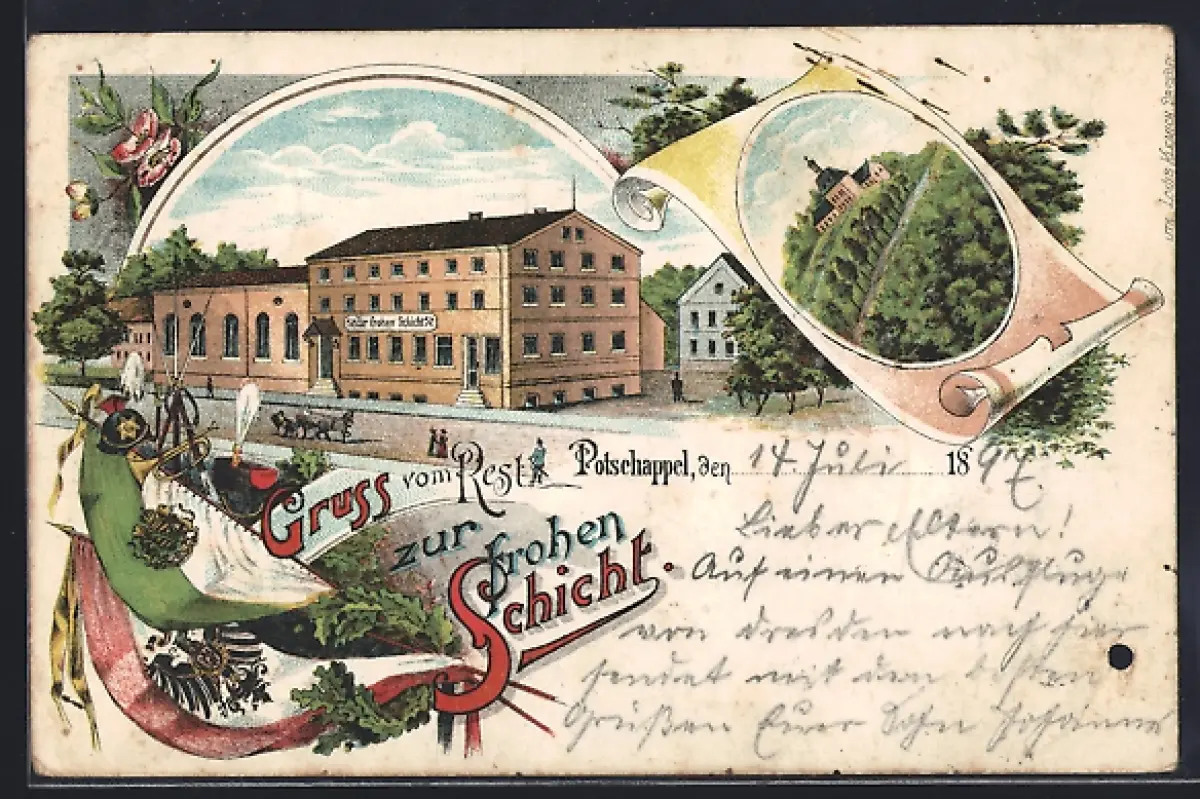 Gruss vom Rest.
zur frohen
Schicht.
Rest. zur frohen Schicht
Potschappel, den 14. Juli 1897.
Lieber Eltern!
Auf einen Ausfluge
von Dresden nach hier
sendet mit den besten
Grüßen Euer Sohn Johannes